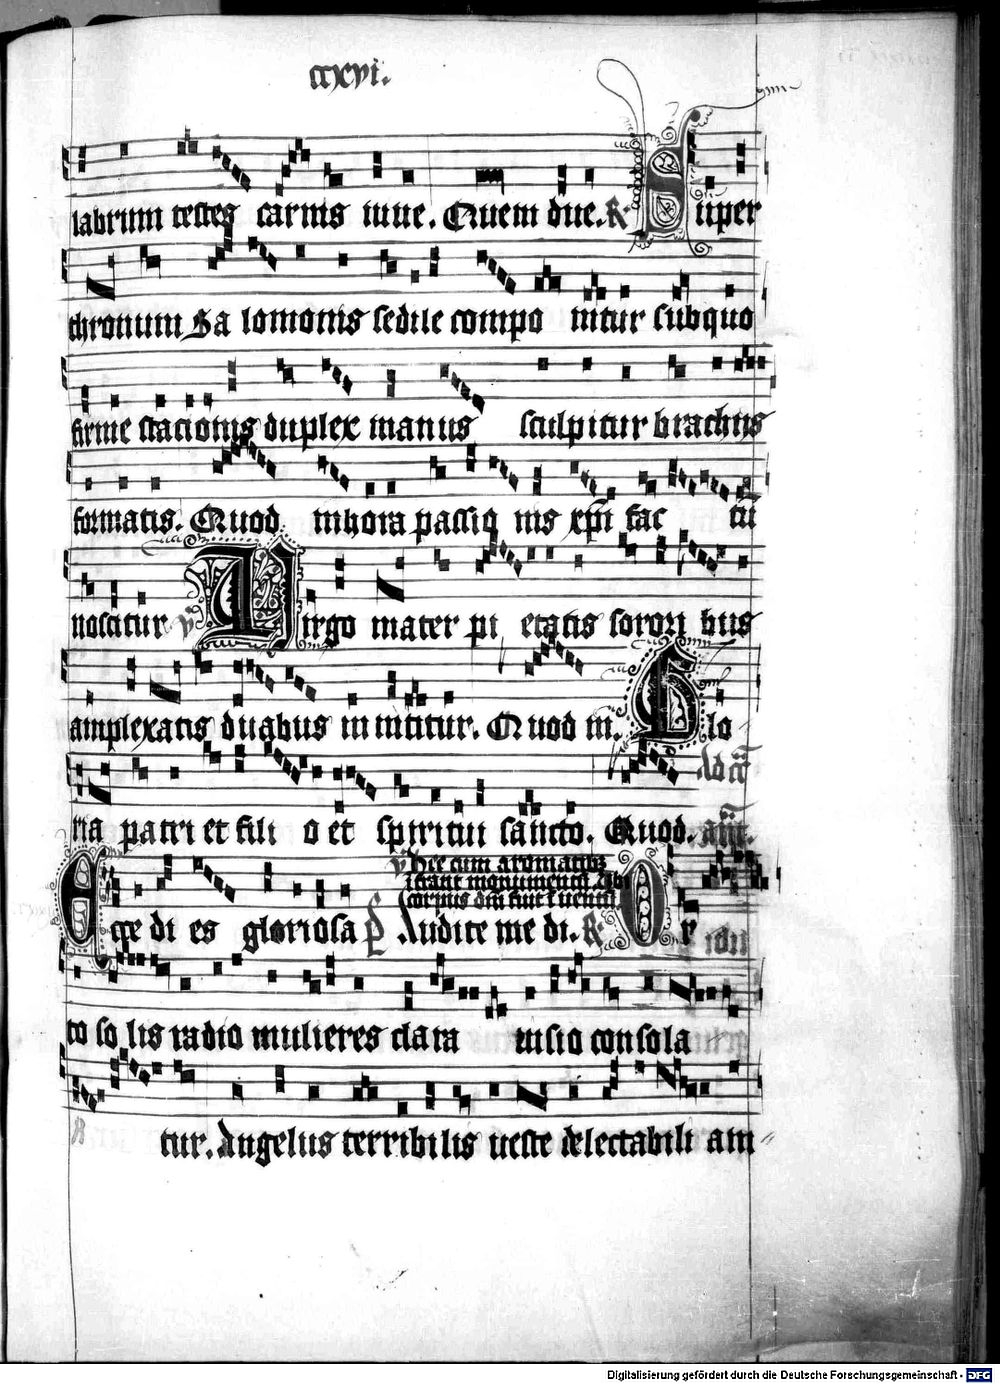 ccxvi.
labrum testes carnis iuue. Quem due. R Super
thronum Sa lomonis sedile compo nitur sub quo
firme stacionis duplex manus sculpitur brachiis
formatis. Quod in hora passio nis xpi fac tu
noscitur v Virgo mater pi etatis sorori bus
amplexatis duabus in nititur. Quod in. Glo
Ad
ria patri et fili o et spiritui sancto. Quod.
v Hec cum aromatibus
corpus dni
Ecce di es gloriosa P Audite me di. R Or
to so lis radio mulieres clara uisio consola
tur. Angelus terribilis ueste delectabili am
Digitalisierung gefördert durch die Deutsche Forschungsgemeinschaft - DFG